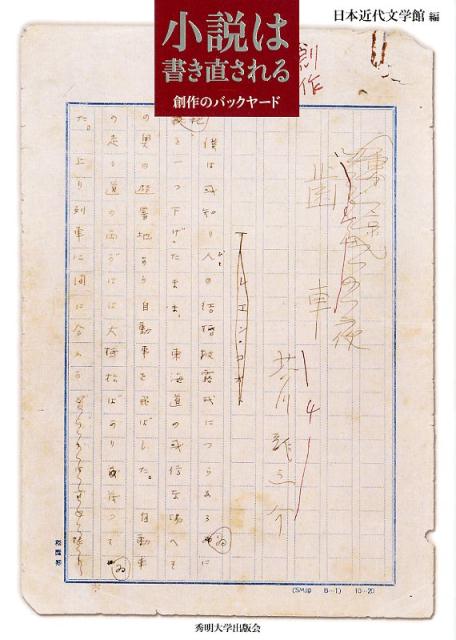 小説は
書き直される
創作のバックヤード
日本近代文学館 編
創作
歯車
芥川龍之介
一 レエン・コオト
僕は或知り人の結婚披露式につらなる為に
鞄を一つ下げたまま、東海道の或停車場へそ
の奥の避暑地から自動車を飛ばした。自動車
の走る道の両がはは大抵松ばかり茂つてゐ
た。上り列車に間に合ふか
(SM印 B-1) 10-20
秀明大学出版会